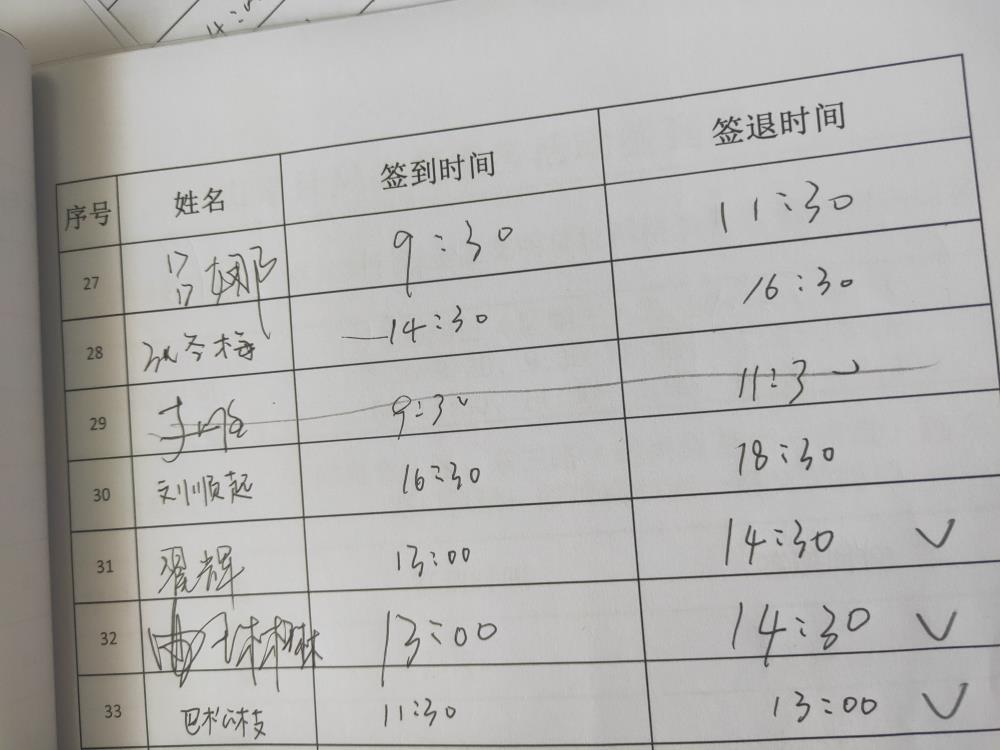 序号 姓名 签到时间 签退时间
27 9:30 11:30
28 孙冬梅 14:30 16:30
29 9:30 11:30
30 刘顺起 16:30 18:30
31 翟辉 13:00 14:30 ✓
32 13:00 14:30 ✓
33 11:30 13:00 ✓